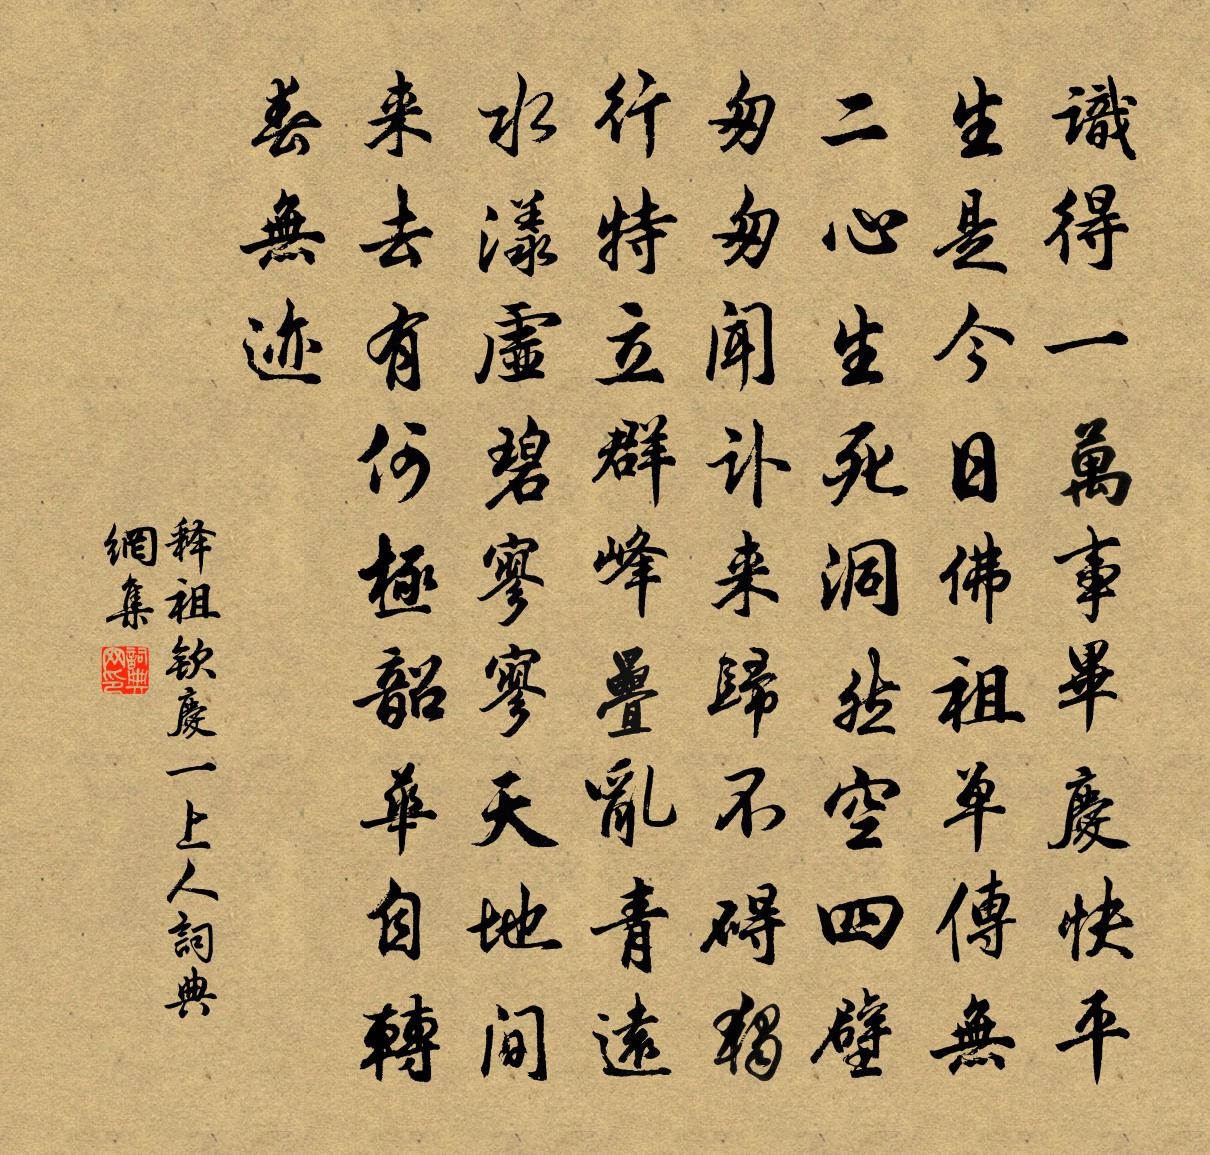 識得一萬事畢慶快平
生是今日佛祖单傳無
二心生死洞然空四壁
匆匆聞讣来歸不碍獨
行特立群峰疊亂青遠
水漾虛碧寥寥天地间
来去有何極韶華自轉
春無迹
释祖钦慶一上人詞典
網集
詞典
网印